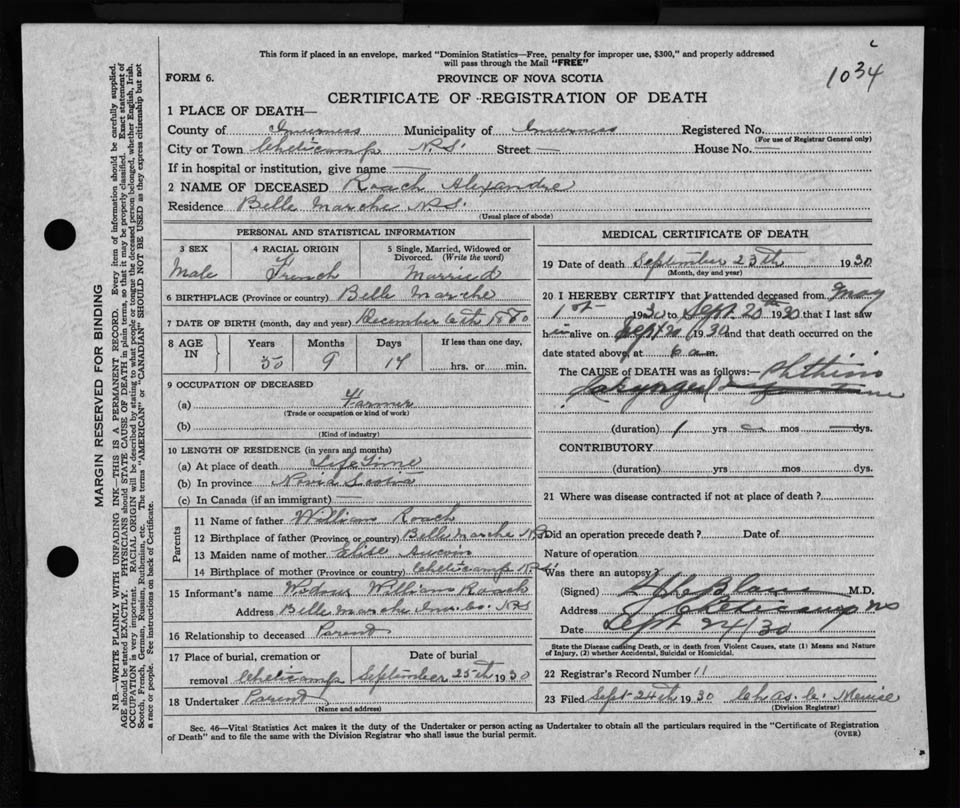 This form if placed in an envelope, marked "Dominion Statistics—Free, penalty for improper use, $300," and properly addressed
will pass through the Mail "FREE"
1034
FORM 6.
PROVINCE OF NOVA SCOTIA
CERTIFICATE OF REGISTRATION OF DEATH
MARGIN RESERVED FOR BINDING
N.B.—WRITE PLAINLY WITH UNFADING INK—THIS IS A PERMANENT RECORD. Every item of information should be carefully supplied.
AGE should be stated EXACTLY. PHYSICIANS should STATE CAUSE OF DEATH in plain terms, so that it may be properly classified. Exact statement of
OCCUPATION is very important. RACIAL ORIGIN will be described by stating to what people or tongue the deceased person belonged, whether English, Irish,
Scotch, French, German, Russian, Ruthenian, etc. The terms "AMERICAN" or "CANADIAN" SHOULD NOT BE USED as they express citizenship but not
a race or people. See instructions on back of Certificate.
1 PLACE OF DEATH—
County of Inverness Municipality of Inverness Registered No.
(For use of Registrar General only)
City or Town Cheticamp N.S. Street — House No. —
If in hospital or institution, give name —
2 NAME OF DECEASED Roach Alexandre
Residence Belle Marche N.S.
(Usual place of abode)
PERSONAL AND STATISTICAL INFORMATION
3 SEX 4 RACIAL ORIGIN 5 Single, Married, Widowed or
Divorced. (Write the word)
Male French Married
6 BIRTHPLACE (Province or country) Belle Marche
7 DATE OF BIRTH (month, day and year) December 6th
8 AGE IN Years Months Days If less than one day,
9 17 hrs. or min.
9 OCCUPATION OF DECEASED
(a) Farmer
(Trade or occupation or kind of work)
(b)
(Kind of industry)
10 LENGTH OF RESIDENCE (in years and months)
(a) At place of death Life Time
(b) In province Nova Scotia
(c) In Canada (if an immigrant) —
Parents
11 Name of father William Roach
12 Birthplace of father (Province or country) Belle Marche N.S.
13 Maiden name of mother Elise Aucoin
14 Birthplace of mother (Province or country) Cheticamp N.S.
15 Informant's name Widow William Roach
Address Belle Marche Inv. Co. N.S
16 Relationship to deceased Parent
17 Place of burial, cremation or Date of burial
removal Cheticamp September 25th 1930
18 Undertaker Parent
(Name and address)
MEDICAL CERTIFICATE OF DEATH
19 Date of death September 23th 1930
(Month, day and year)
20 I HEREBY CERTIFY that I attended deceased from May
1st 1930 to Sept. 20th 1930 that I last saw
him alive on Sept 20 1930 and that death occurred on
date stated above, at 6 a.m.
The CAUSE of DEATH was as follows:— Phthisis
Laryngeal
(duration) 1 yrs — mos — dys.
CONTRIBUTORY
(duration) yrs mos dys.
21 Where was disease contracted if not at place of death?
Did an operation precede death? Date of
Nature of operation
Was there an autopsy?
(Signed) M.D.
Address Cheticamp NS
Date Sept 24/30
State the Disease causing Death, or in death from Violent Causes, state (1) Means and Nature
of Injury, (2) whether Accidental, Suicidal or Homicidal.
22 Registrar's Record Number 11
23 Filed Sept 24th 1930 Chas. C.
(Division Registrar)
Sec. 46—Vital Statistics Act makes it the duty of the Undertaker or person acting as Undertaker to obtain all the particulars required in the "Certificate of Registration
of Death" and to file the same with the Division Registrar who shall issue the burial permit.
(OVER)